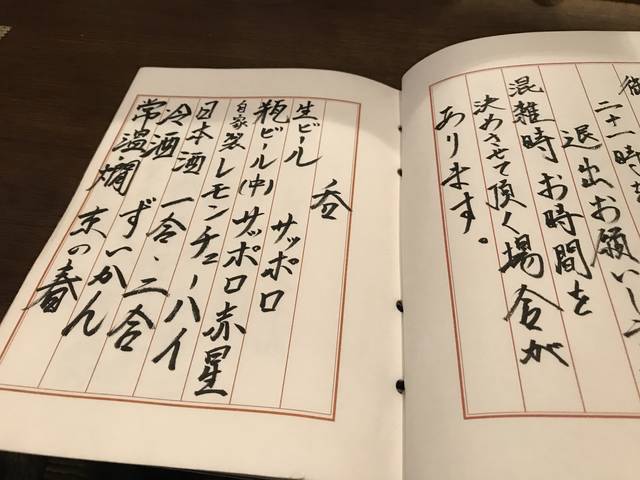 二十一時
退出お願いし
混雑時お時間を
決めさせて頂く場合が
あります。
呑
生ビール　サッポロ
瓶ビール(中)サッポロ赤星
自家製レモンチューハイ
日本酒　一合、二合
冷酒　ずいかん
常温、燗　京の春